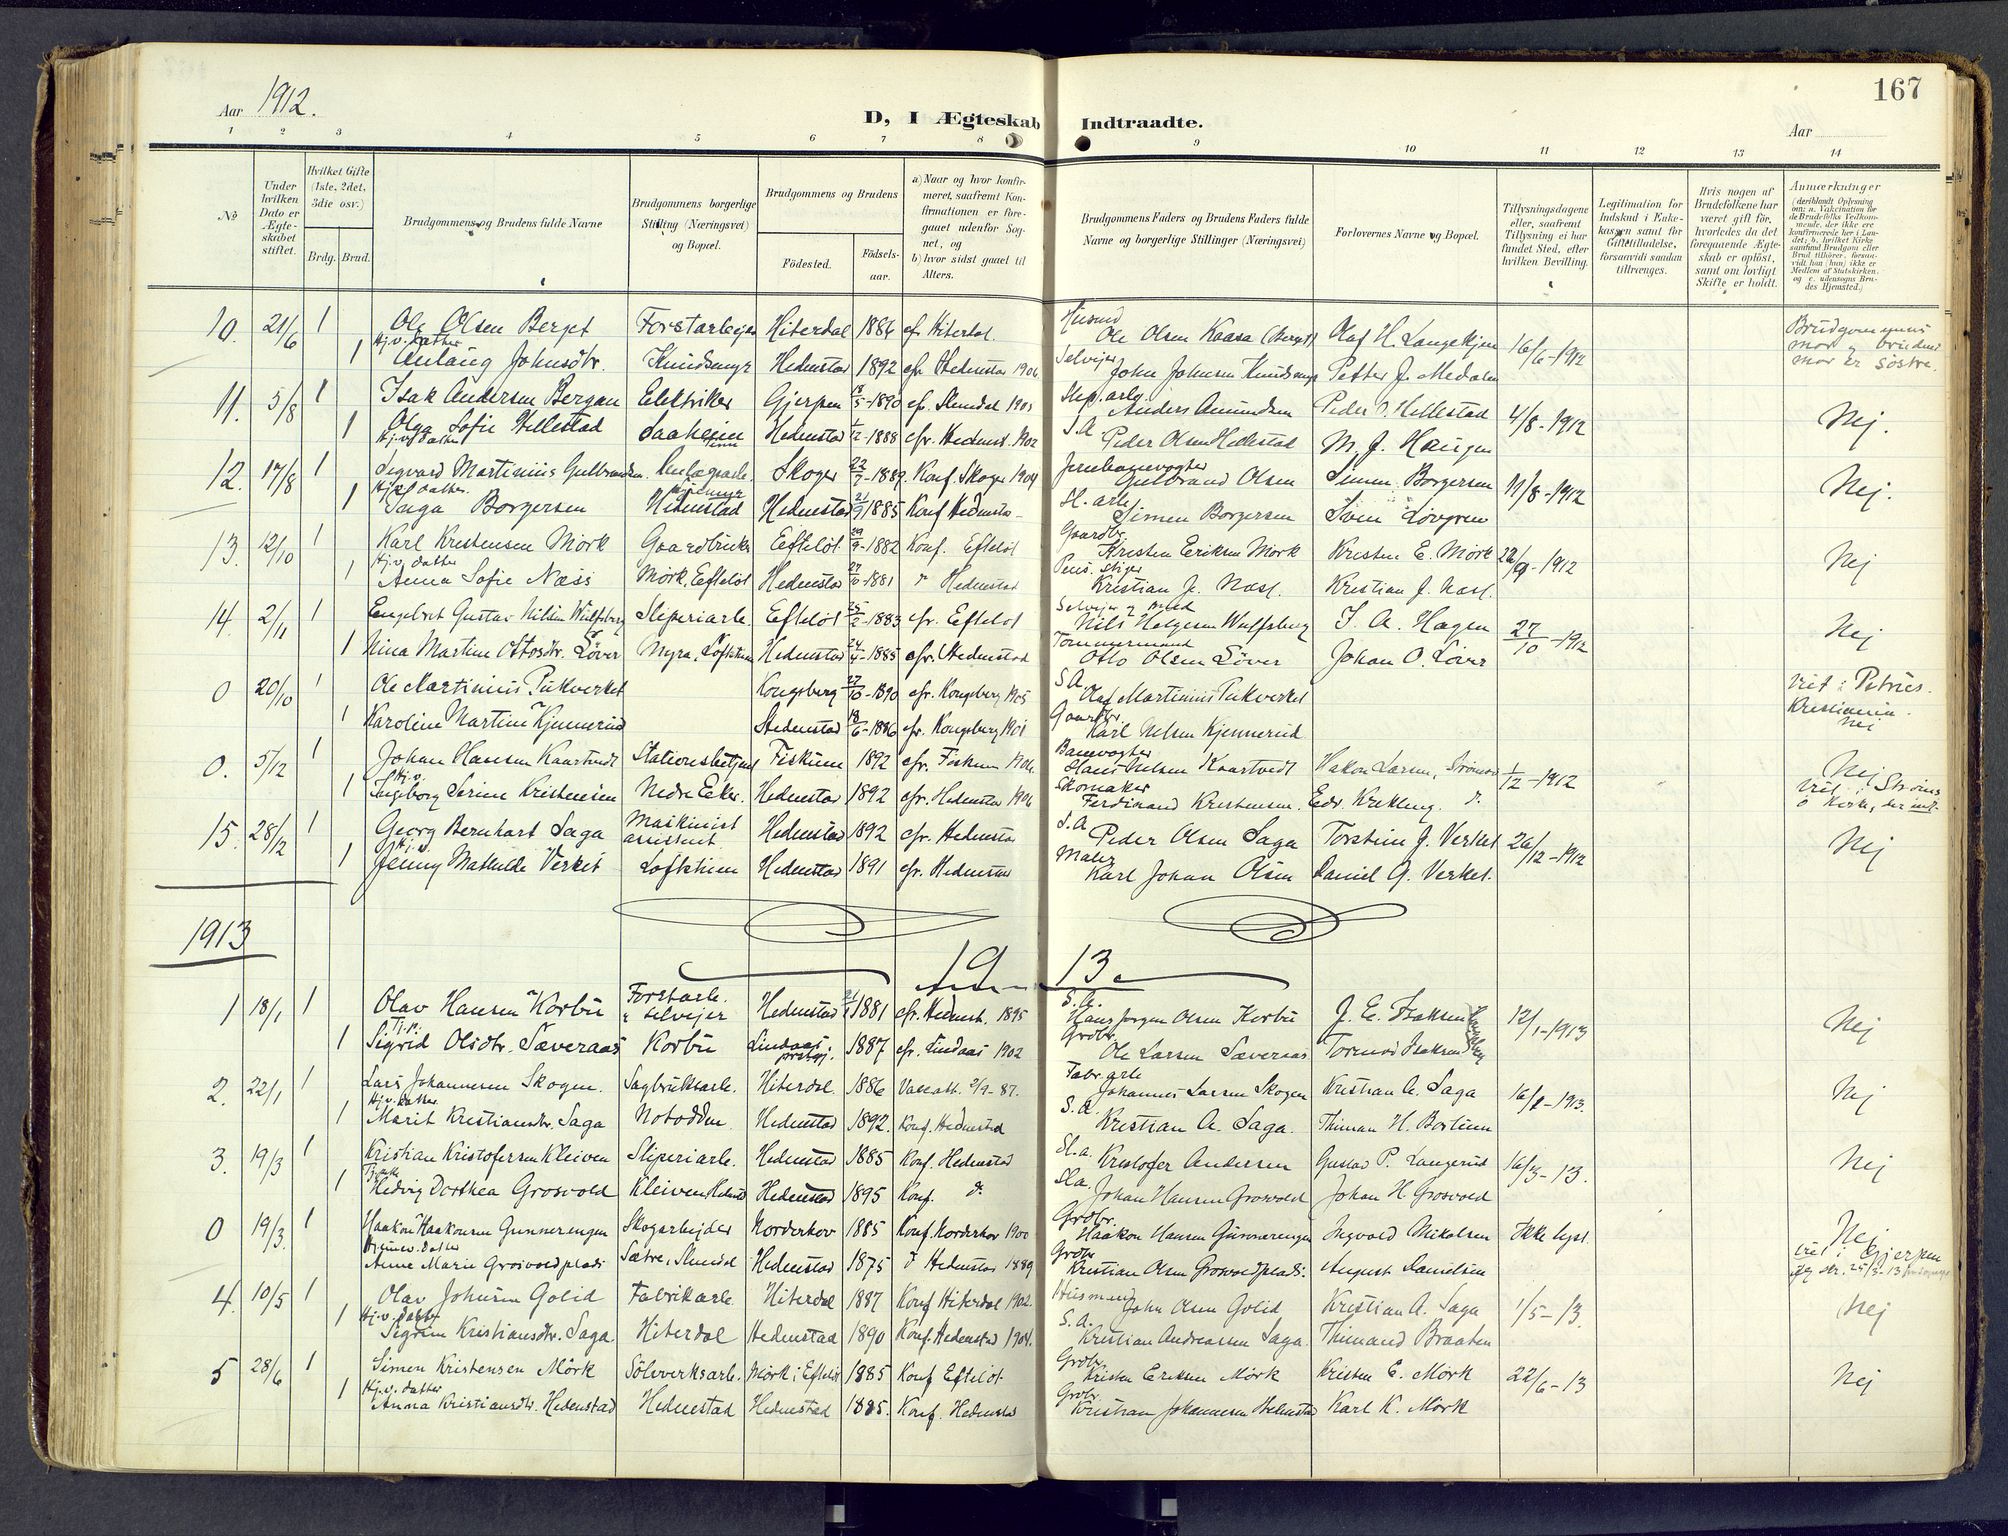 167
Aar 1912.
D, I Ægteskab Indtraadte.
Aar
1 2 3 4 5 6 7 8 9 10 11 12 13 14
No
Under hvilken Dato er Ægteskabet stiftet.
Hvilket Gifte (1ste, 2det, 3die osv.)
Brdg. Brud.
Brudgommens og Brudens fulde Navne
Brudgommens borgerlige Stilling (Næringsvei) og Bopæl.
Brudgommens og Brudens
Födested. Födselsaar.
a) Naar og hvor konfirmeret, saafremt Konfirmationen er foregaaet udenfor Sognet, og b) hvor sidst gaaet til Alters.
Brudgommens Faders og Brudens Faders fulde Navne og borgerlige Stillinger (Næringsvei)
Forlovernes Navne og Bopæl.
Tillysningsdagene eller, saafremt Tillysning ei har fundet Sted, efter hvilken Bevilling.
Legitimation for Indskud i Enkekassen samt for Giftetilladelse, forsaavidt saadan tiltrænges.
Hvis nogen af Brudefolkene har været gift för, hvorledes da det foregaaende Ægteskab er oplöst, samt om lovligt Skifte er holdt.
Anmærkninger (deriblandt Oplysning om: a. Vakcination for de Brudefolks Vedkommende, der ikke ere konfirmerede her i Landet; b. hvilket Kirkesamfund Brudgom eller Brud tilhörer, forsaavidt han (hun) ikke er Medlem af Statskirken, og c. udensogns Brudes Hjemsted.)
10. 21/6 1 Ole Olsen Berget Forstarbejder Hiterdal 1886 cfr. Hiterdal. Husmd Ole Olsen Kaasa (Berget) Olaf H. Langekjen 16/6-1912 Brudgommens mor og brudens mor er søstre.
1 Hj.v. datter Anlaug Johnsdtr. Knudsmyr Hedenstad 1892 cfr. Hedenstad 1906 Selvejer John Johnsen Knudsmyr Petter J. Medalen
11. 5/8 1 Isak Andersen Bergan Elektriker Gjerpen -1890 cfr. Slemdal 1905 Anders Amundsen Peder O. Hellestad 4/8-1912 Nej.
1 Olga Sofie Hellestad Hj.v. datter Saaheim Hedenstad -1888 cfr. Hedenst. 1902 S.A Peder Olsen Hellestad M. J. Haugen
12. 17/8 1 Sigvard Martinius Gulbrandsen. Skoger 22/7-1889. Konf. Skoger 1904 Jernbanevogter Gulbrand Olsen Simen Borgersen 11/8-1912 Nej.
1 Hj.v. datter Saga Borgersen Hedenstad Hedenstad 21/9 1885 Konf Hedensta- Simen Borgersen Sven Løvgren
13. 12/10 1 Karl Kristensen Mørk Gaardbruker Eftelöt 29/9-1882 Konf. Eftelöt Gaardbr. Kristen Eriksen Mørk Kristen E. Mørk 22/9-1912 Nej
1 Hj.v. datter Anna Sofie Næss Mørk, Eftelöt Hedenstad -1881 Hedenstad Pens. stiger Kristian J. Næss. Kristian J. Næss.
14. 2/11 1 Engebret Gustav Nilsen Wulfsberg Sliperiarb. Eftelöt -1883 cfr. Eftelöt Nils Helgesen Wulfsberg I. A. Hagen 27/10-1912 Nej
1 Nina Martine Ottosdtr. Løver Myra, Løftstuen Hedenstad -1885 cfr. Hedenstad Tømmermand Otto Olsen Løver Johan O. Løver
0 20/10 1 Ole Martinius Pukverket Kongsberg -1890 cfr. Kongsberg 1905 S.A Olaf Martinius Pukverket Viet i Petrus. Kristiania. Nej
1 Karoline Martine Kjennerud Hedenstad 18/6-1886 cfr. Kongsberg 1901 Gaardbr. Karl Nilsen Kjennerud
0. 5/12 1 Johan Hansen Kaartvedt Stationsbetjent Fiskum 1892 cfr. Fiskum 1906. Banevogter Hans Nilsen Kaartvedt Hakon Larsen, 1/12-1912 Nej Viet i
1 Hj.v. Ingeborg Serine Kristensen Nedre Eeker. Hedenstad 1892 cfr. Hedenstad 1906 Skomaker Ferdinand Kristensen. Edv. Krekling.
15. 28/12 1 Georg Bernhart Saga Maskinist assistent. Hedenstad 1892 cfr. Hedenstad S.A Peder Olsen Saga Torstein J. Verket 26/12-1912 Nej
1 Hj.v. Jenny Mathilde Verket Løftstuen Hedenstad 1891 cfr. Hedenstad Maler Karl Johan Olsen Daniel G. Verket.
1913
1913.
1 18/1 1 Olav Hansen Korbu Forstarb. & selvejer Hedenstad 1881 cfr. Hedenst. 1895 S.A. Hans Jørgen Olsen Korbu J. E. Isaksen 12/1-1913 Nej
1 Tj.p. Sigrid Olsdtr. Sæveraas Korbu Lindaas prstgj. 1887 cfr. Lindaas 1902 Grdbr. Ole Larsen Sæveraas Tormod Isaksen
2. 22/1 1 Lars Johannesen Skogen. Sagbruksarb. Hiterdal. 1886 Vacc.att. 2/9-87. Fabr.arb Johannes Larsen Skogen Kristian A. Saga 16/1-1913. Nej
1 Hj.v. datter Marit Kristiansdtr. Saga Notodden Hedenstad 1892. Konf. Hedenstad S.A. Kristian A. Saga. Thiman H. Bostuen
3. 19/3 1 Kristian Kristofersen Kleiven Sliperiarb. Hedenstad 1885 Konf. Hedenstad Sl.a. Kristofer Andersen Gustav P. Langerud 16/3-13. Nej
1 Hedvig Dorthea Grosvold Kleiven Hedenstad 1895 Konf. do Sl.a. Johan Hansen Grosvold Johan H. Grosvold
0 19/3. 1 Haakon Haakonsen Gunnerengen Skogarbejder Norderhov 1885 Konf. Norderhov 1900 Grdbr. Haakon Hansen Gunnerengen Ingvald Mikalsen Ikke lyst. Nej viet i Gjerpen
Hjemv. datter Anne Marie Grosvoldplads Sætre, Slemdal Hedenstad 1875 Hedenstad 1889 Grdbr Kristian Olsen Grosvoldplads. August Danielsen
4. 10/5 1 Olav Johnsen Golid Fabrikarb. Hiterdal 1887 Konf Hiterdal 1902. Husmand John Olsen Golid Kristian A. Saga 1/5-13. Nej
1 Hj.v. datter Sigrun Kristiansdtr. Saga Hiterdal Hedenstad 1890 Konf. Hedenstad 1904. S.A. Kristian Andreassen Saga. Thimand Braaten
5 28/6 1 Simen Kristensen Mörk Sölvverksarb. Mørk i Eftelöt 1885 Konf Eftelöt. Grdbr Kristen Eriksen Mörk Kristen E. Mörk 22/6-13 Nej
1 Hj.v. datter Anna Kristiansdtr. Hedenstad Hedenstad Hedenstad 1885. Konf. Hedenstad Grdbr. Kristian Johannesen Hedenstad Karl K. Mörk